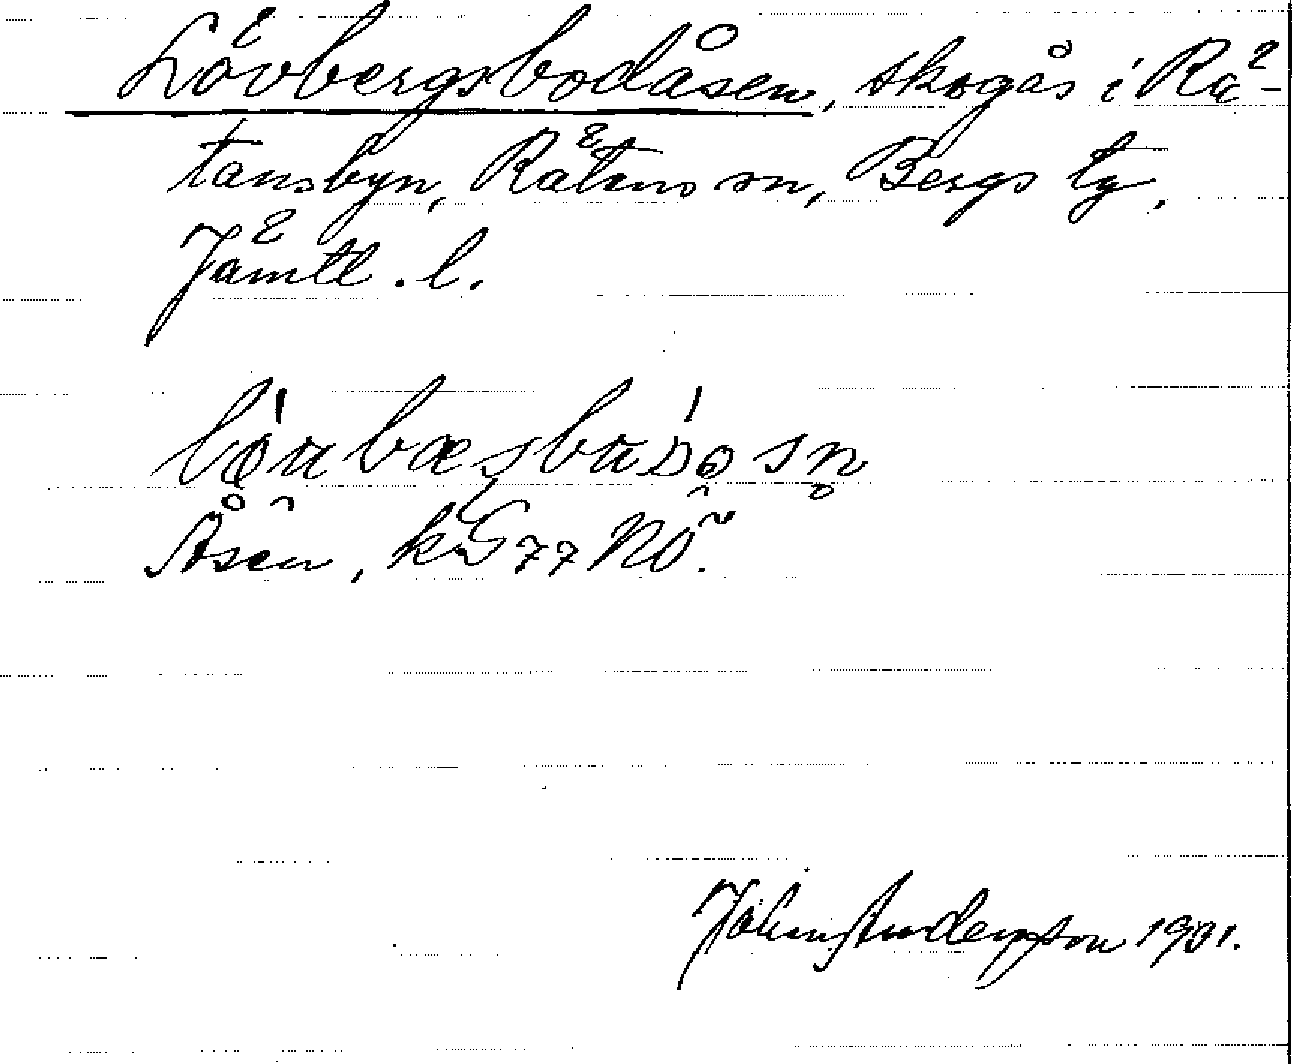 Lövbergsbodåsen, skogås i Rä-
tansbyn, Rätans sn, Bergs tg,
Jämtl. l.
Åsen, kG 77 NÖ.
Johan Andersson 1901.